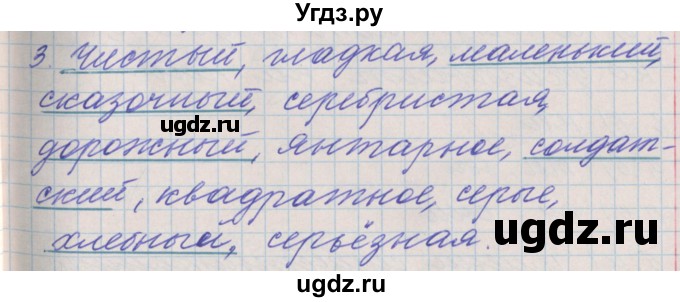 Угдз.ру
3. Чистый, гладкая, маленький,
сказочный, серебристая,
ugdz.ru
дорожный, янтарное, солдат-
ugdz.ru
ский, квадратное, серые,
хлебный, серьёзная.
ugdz.ru
ugdz.ru